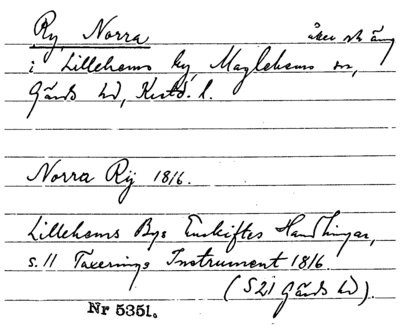 Ry, Norra åker och äng
i Lillehems by, Maglehems sn,
Gärds hd, Krstd. l.
Norra Rÿ 1816.
Lillehems Bys Enskiftes Handlingar,
s. 11 Taxerings Instrument 1816
(S21 Gärds hd).
Nr 5351.